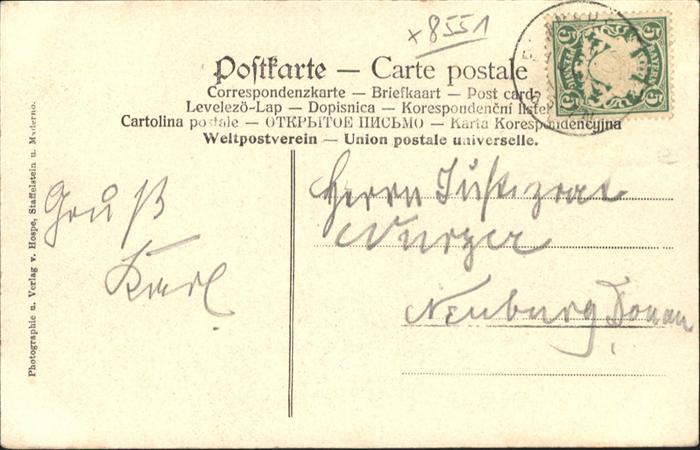 x 8551
Postkarte — Carte postale
Correspondenzkarte — Briefkaart — Post card
Levelező-Lap — Dopisnica — Korespondenční lístek
Cartolina postale — ОТКРЫТОЕ ПИСЬМО — Karta Korespondencyjna
Weltpostverein — Union postale universelle.
5 BAYERN 5
Photographie u. Verlag v. Hospe, Staffelstein u. Maderno.
Gruß
Karl
Herrn Justizrat
Wurzer
Neuburg Donau